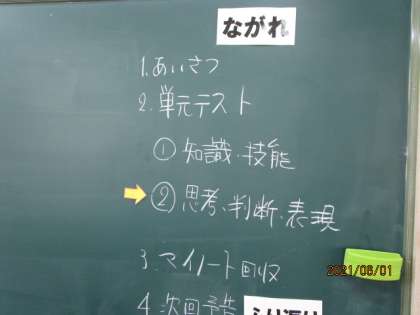 ながれ
1.あいさつ
2.単元テスト
①知識・技能
②思考、判断、表現
3.マイノート回収
4.次回予告
ふり返り
2021/06/01